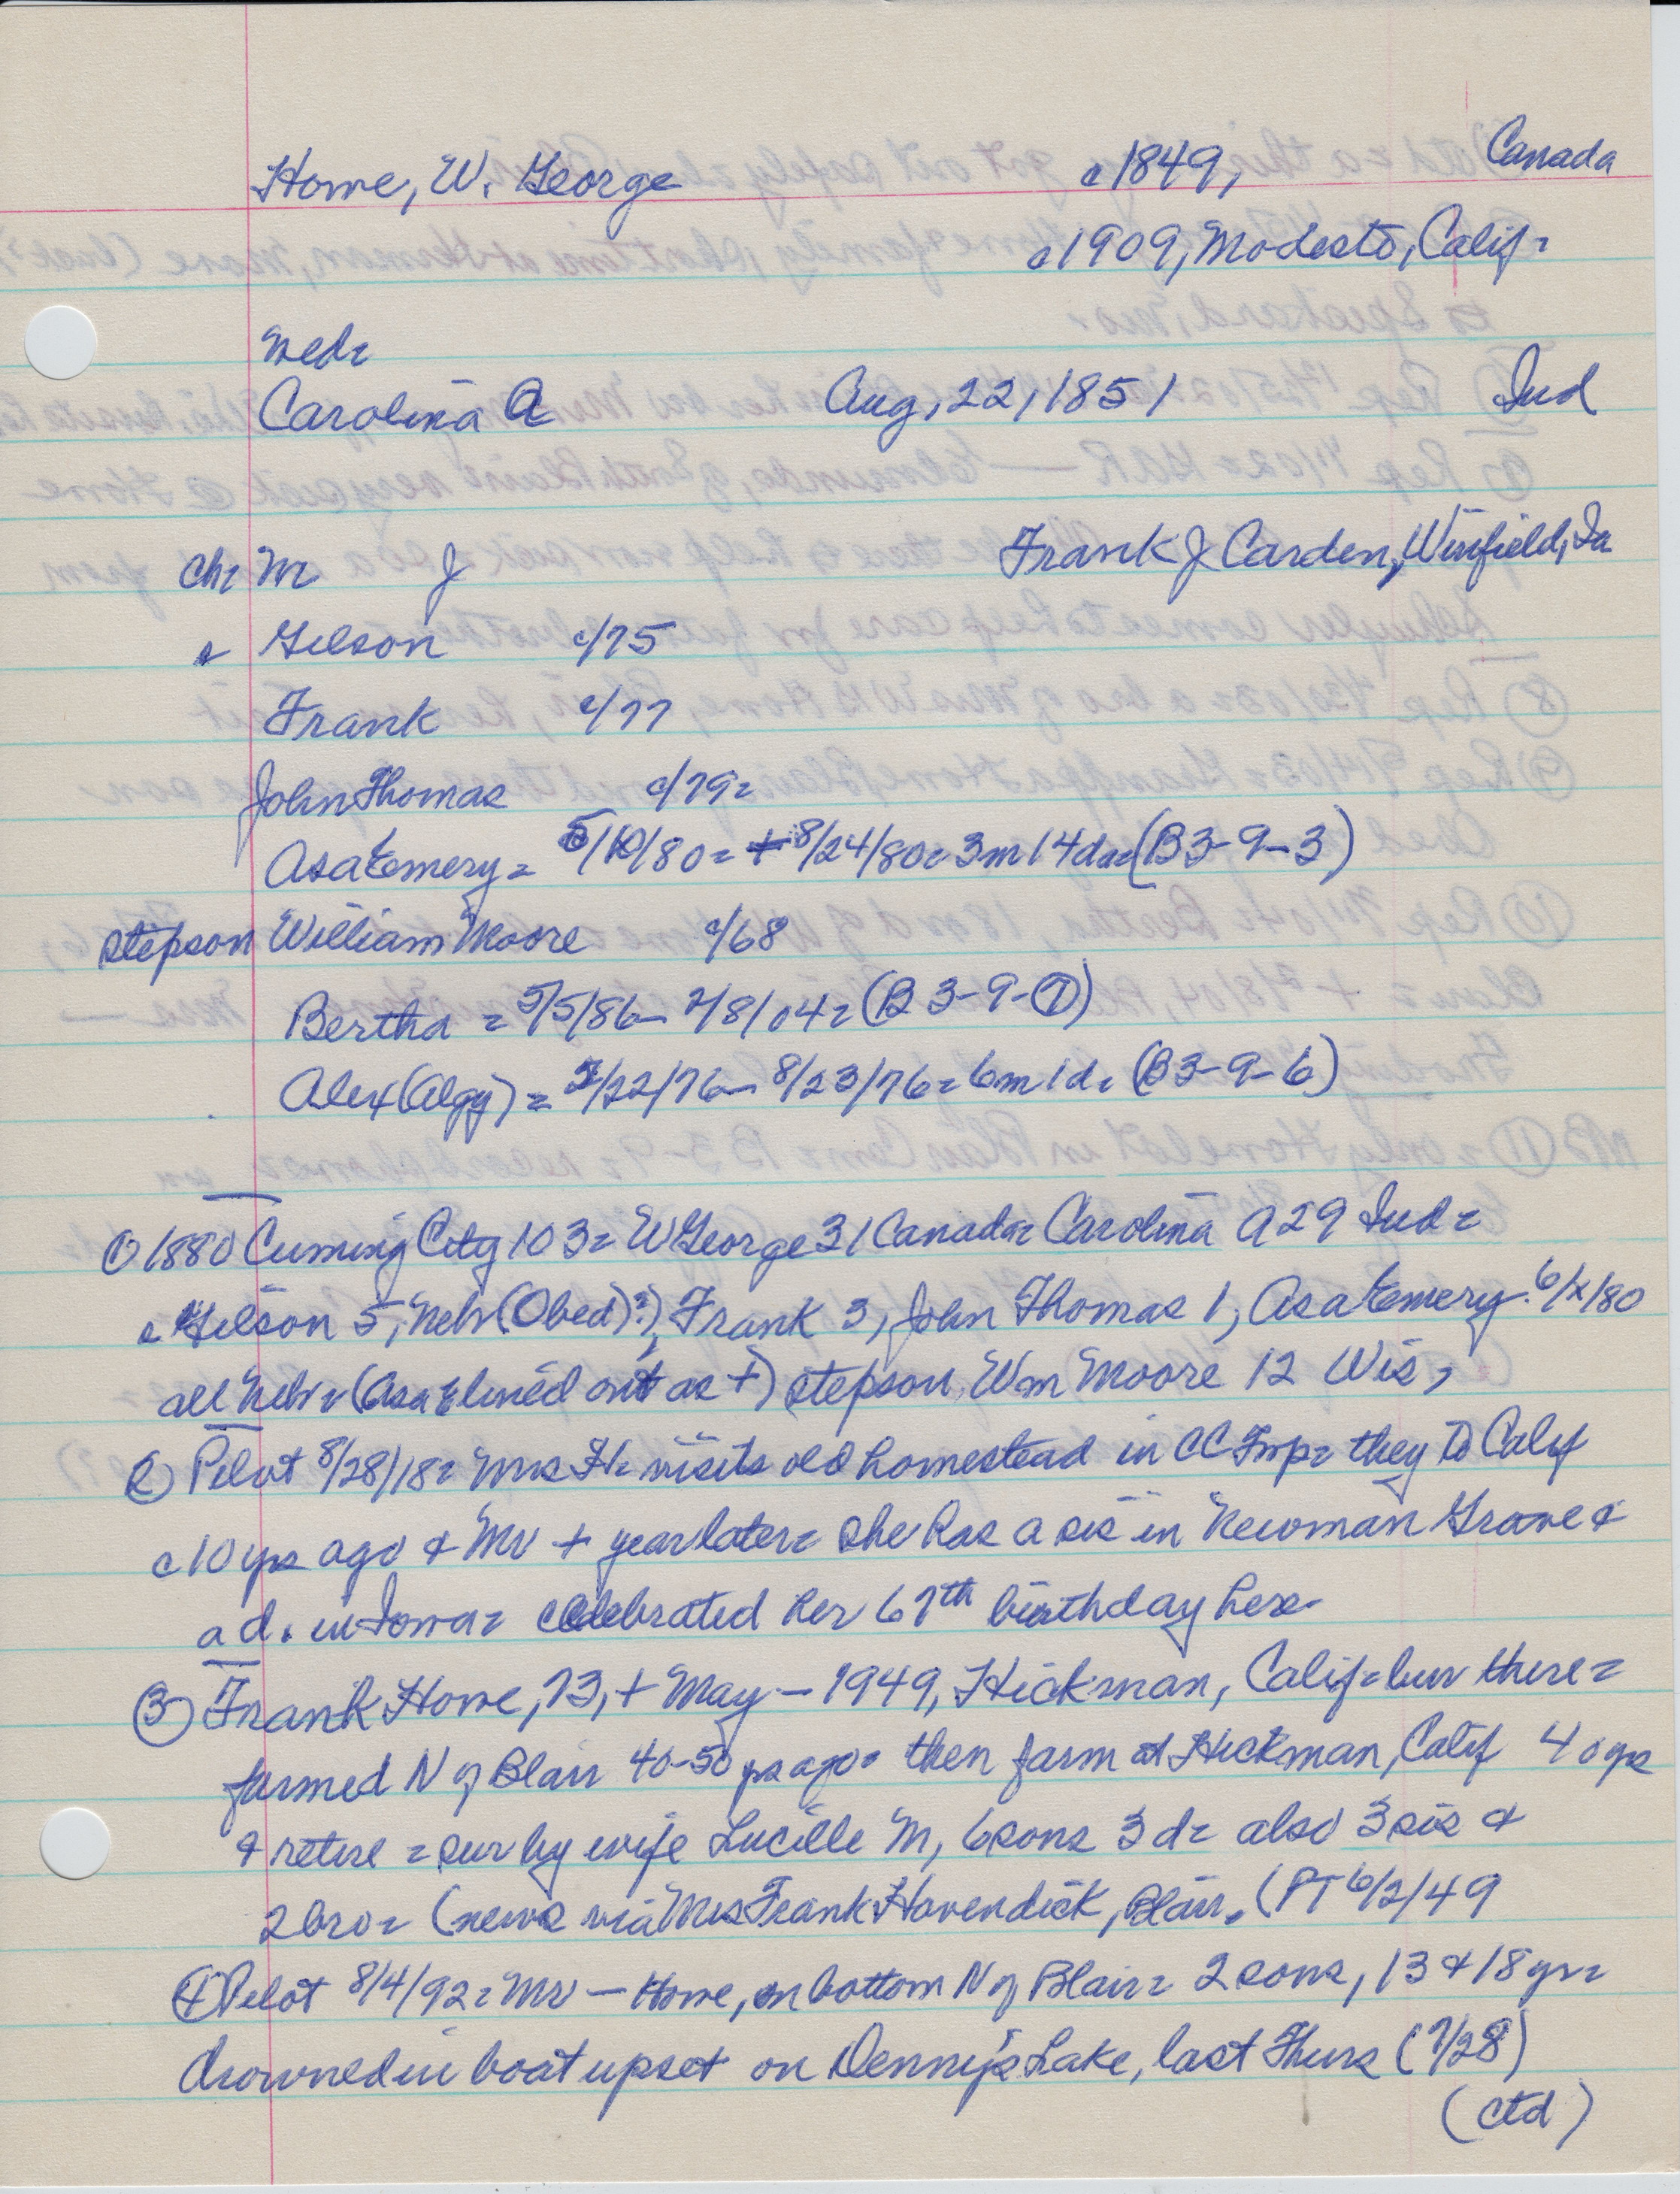 Horne, W. George c1849, Canada
c1909, Modesto, Calif=
Med=
Carolina A Aug, 22, 1851 Ind
Ch= M J Frank J Carden, Winfield, Ia
s Gilson c/75
Frank c/77
John Thomas c/79=
Asa Emery = 5/10/80 = + 8/24/80 = 3m 14da= (B3-9-3)
stepson William Moore c/68
Bertha = 5/5/86 - 7/8/04 = (B 3-9-7)
Alex (Algy) = 2/22/76 - 8/23/76 = 6m 1d= (B3-9-6)
① 1880 Cuming City 103= W George 31 Canada= Carolina A 29 Ind=
s Gilson 5, Nebr (Obed)?), Frank 3, John Thomas 1, Asa Emery 6/x/80
all Nebr= (Asa E lined out as +) stepson, Wm Moore 12 Wis,
② Pilot 8/28/18= Mrs H= visits old homestead in CC Twp= they to Calif
c 10 yrs ago & Mr + year later= she has a sis in Newman Grove &
a d. in Iowa= celebrated her 67th birthday here
③ Frank Horne, 73, + May - 1949, Hickman, Calif= bur there=
farmed N of Blair 40-50 yrs ago= then farm at Hickman, Calif 40 yrs
& retire = sur by wife Lucille M, 6 sons 3 d= also 3 sis &
2 bro= (news via Mrs Frank Hovendick, Blair, (PT 6/2/49
④ Pilot 8/4/92= Mr — Horne, on bottom N of Blair= 2 sons, 13 & 18 yr=
drowned in boat upset on Denny's Lake, last Thurs (7/28)
(ctd)